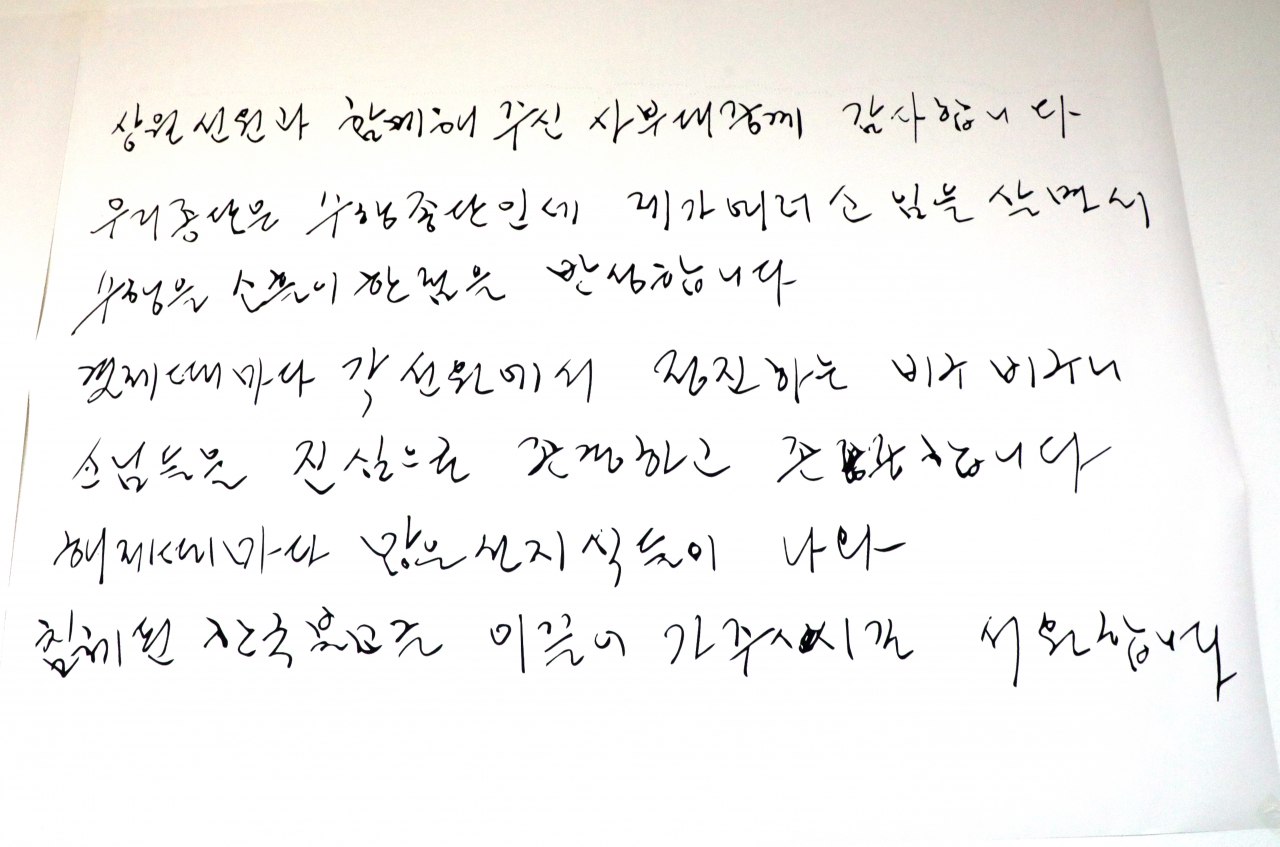 상월선원과 함께해 주신 사부대중께 감사합니다
우리종단은 수행종단인데 제가여러 소임을 살면서
수행을 소흘이 한점을 반성합니다
결제때마다 각 선원에서 정진하는 비구 비구니
스님들을 진심으로 존경하고 존중합니다
해제때마다 많은선지식들이 나와
침체된 한국불교를 이끌어 가주시길 서원합니다